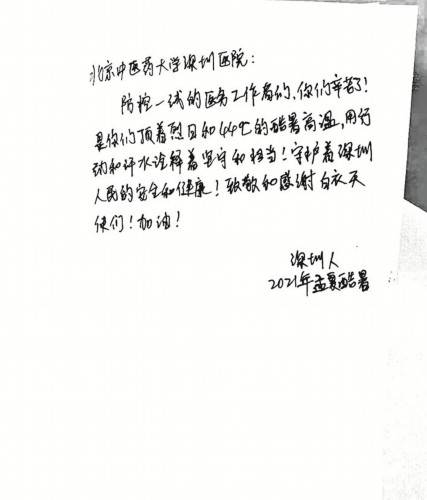 北京中医药大学深圳医院:
防控一线的医务工作者们、你们辛苦了!
是你们顶着烈日和44℃的酷暑高温,用行
动和汗水诠释着坚守和担当!守护着深圳
人民的安全和健康!致敬和感谢白衣天
使们!加油!
深圳人
2021年孟夏酷暑